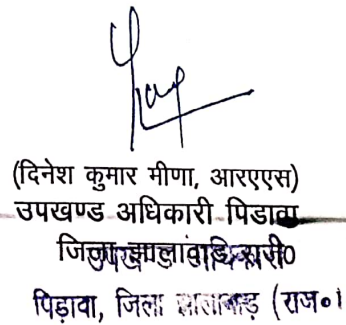 (दिनेश कुमार मीणा, आरएएस)
उपखण्ड अधिकारी पिडावा
जिला झालावाड
पिड़ावा, जिला झालावाड़ (राज०)